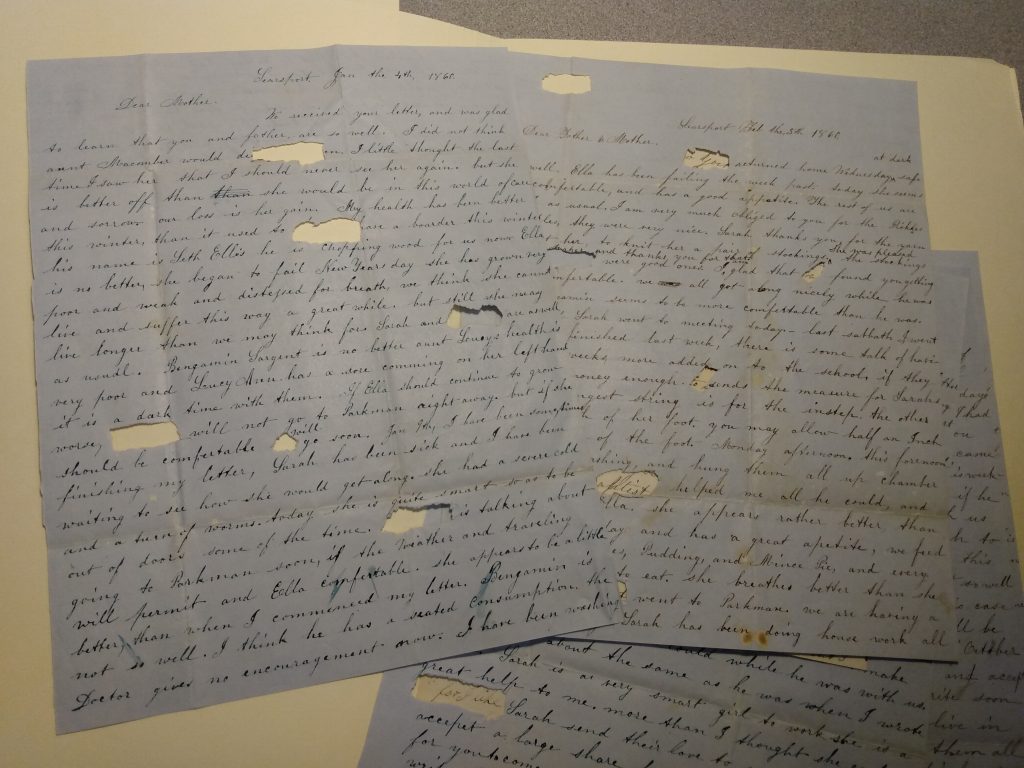 Searsport Jan the 4th, 1860.
Dear Mother.
We received your letter, and was glad
to learn that you and father, are so well. I did not think
aunt Macomber would de en. I little thought the last
time I saw her that I should never see her again. but she
is better off than than she would be in this world of care
and sorrow our loss is her gain. My health has been better
this winter, than it used to have a boarder this winter
his name is Seth Ellis he is chopping wood for us now Ella
is no better, she began to fail New Years day she has grown very
poor and weak and distessed for breath, we think she cannot
live and suffer this way a great while. but still she may
live longer than we may think for. Sarah and are as well,
as usual. Benjamin Sargent is no better aunt Loucy's health is
very poor and Loucy Ann has a sore comming on her left hand
it is a dark time with them. If Ella should continue to grow
worse, will not go to Parkman right away. but if she
should be comfortable will go soon. Jan I have been sometime
finishing my letter, Sarah has been sick and I have been
waiting to see how she would get along. she had a severe cold
and a turn of worms. today she is quite smart so as to be
out of doors some of the time. is talking about
going to Parkman soon, if the weather and traveling
will permit and Ella comfortable. she appears to be a little
better, than when I commenced my letter. Benjamin is
not so well. I think he has a seated consumption the
Doctor gives no encouragement now. I have been washing
Searsport Feb the 5th 1860
at dark
Dear Father & Mother.
returned home Wednesday safe
well. Ella has been failing the week past. today she seems
comfortable, and has a good appetite. The rest of us are
as usual. I am very much obliged to you for the
they were very nice. Sarah thanks you for the yarn
her, to knit her a pair of stockings. She was pleased
and thanks you for The stockings
were good ones I glad that found you getting
comfortable. we all got along nicely while he was
seems to be more comfortable than he was.
Sarah went to meeting today - last sabbath I went
finished last week, there is some talk of havi
weeks more added on to the school, if they
money enough. I send the measure for Sarahs
string is for the instep. the other
of her foot, you may allow half an Inch
of the foot. Monday afternoon. this forenoon
and hung them all up chamber
assist helped me all he could, and
Ella. she appears rather better than
and has a great apetite, we feed
Pudding, and Mince Pie, and every
to eat. she breathes better than she
went to Parkman. we are having a
Sarah has been doing house work all
days
I had
on
came
work
if he
us
to
this
so well
case
be
October
and accept
could while he was with us, make
about the same as he was when I wrote
Sarah is a very smart girl to work she is a
great help to me. more than I thought she
Sarah send their love to them all
accepet a large share
for you to come
live in
soon